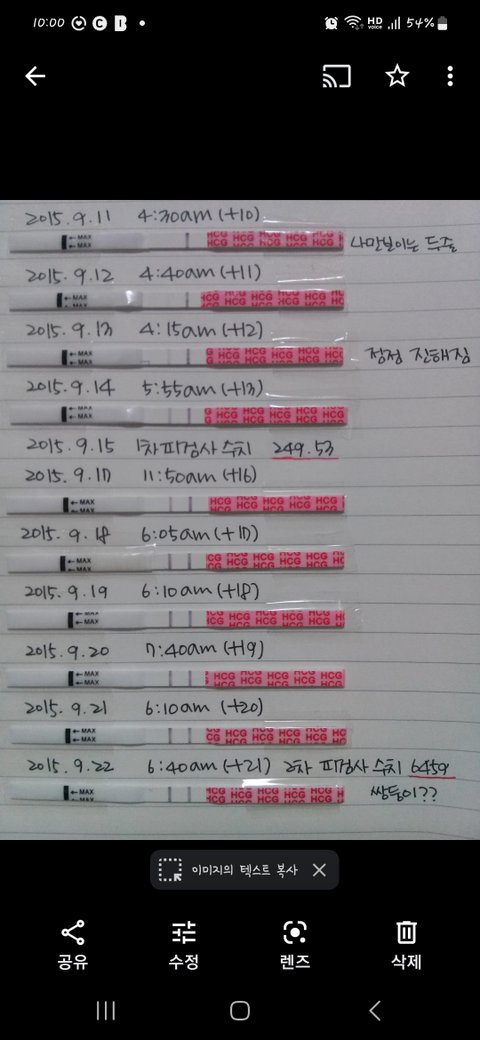 10:00 HD voice 54%
2015.9.11 4:30am (+10)
← MAX
← MAX
HCG HCG HCG HCG HCG HCG
나만보이는 두줄
2015.9.12 4:40am (+11)
← MAX
← MAX
HCG HCG HCG HCG HCG HCG
2015.9.13 4:15am (+12)
← MAX
← MAX
HCG HCG HCG HCG HCG HCG
점점 진해짐
2015.9.14 5:55am (+13)
← MAX
← MAX
HCG HCG HCG HCG HCG HCG
2015.9.15 1차피검사 수치 249.53
2015.9.17 11:50am (+16)
← MAX
HCG HCG HCG HCG HCG HCG
2015.9.18 6:05am (+17)
← MAX
← MAX
HCG HCG HCG HCG HCG HCG
2015.9.19 6:10am (+18)
← MAX
← MAX
HCG HCG HCG HCG HCG HCG
2015.9.20 7:40am (+19)
← MAX
← MAX
HCG HCG HCG HCG HCG HCG
2015.9.21 6:10am (+20)
← MAX
← MAX
HCG HCG HCG HCG HCG HCG
2015.9.22 6:40am (+21) 2차 피검사 수치 6459
← MAX
← MAX
HCG HCG HCG HCG HCG HCG
쌍둥이??
이미지의 텍스트 복사
공유 수정 렌즈 삭제